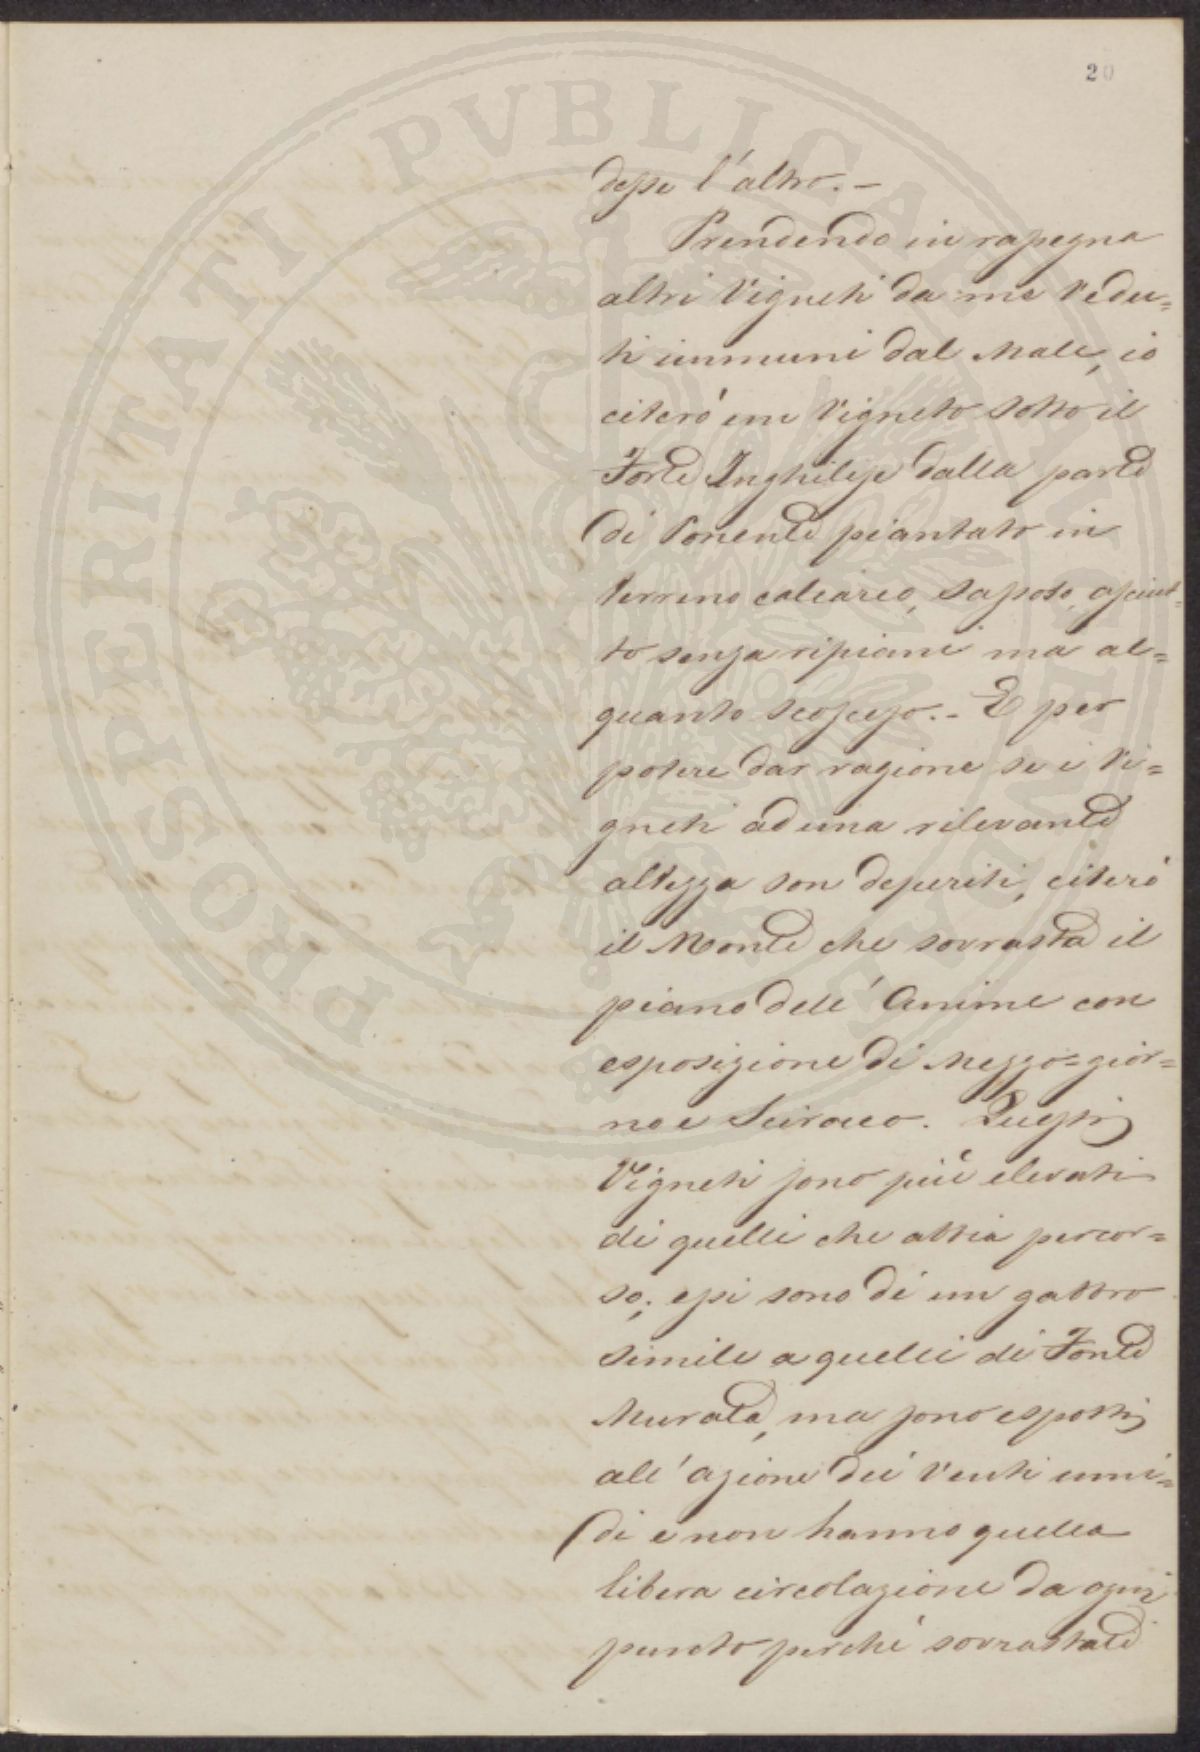 20
PROSPERITATI PVBLICAE AVGENDAE
desse l'altro. -
Prendendo in rassegna
altri Vigneti da me Vedu=
ti immuni dal Male, io
citerò un Vigneto sotto il
Forte Inghilese dalla parte
di Ponente piantato in
terreno calcareo, sassoso, asciut=
to senza ripiani ma al=
quanto scosceso. - E per
potere dar ragione se i Vi=
gneti ad una rilevante
altezza son deperiti, citerò
il Monte che sovrasta il
piano dell'Anime con
esposizione di Mezzo=gior=
no e Scirocco. Questi
Vigneti sono più elevati
di quelli che abbia percor=
so; essi sono di un gabbro
simile a quelli di Fonte
Murata, ma sono esposti
all'azione dei Venti umi=
di e non hanno quella
libera circolazione da ogni
punto perchè sovrastate